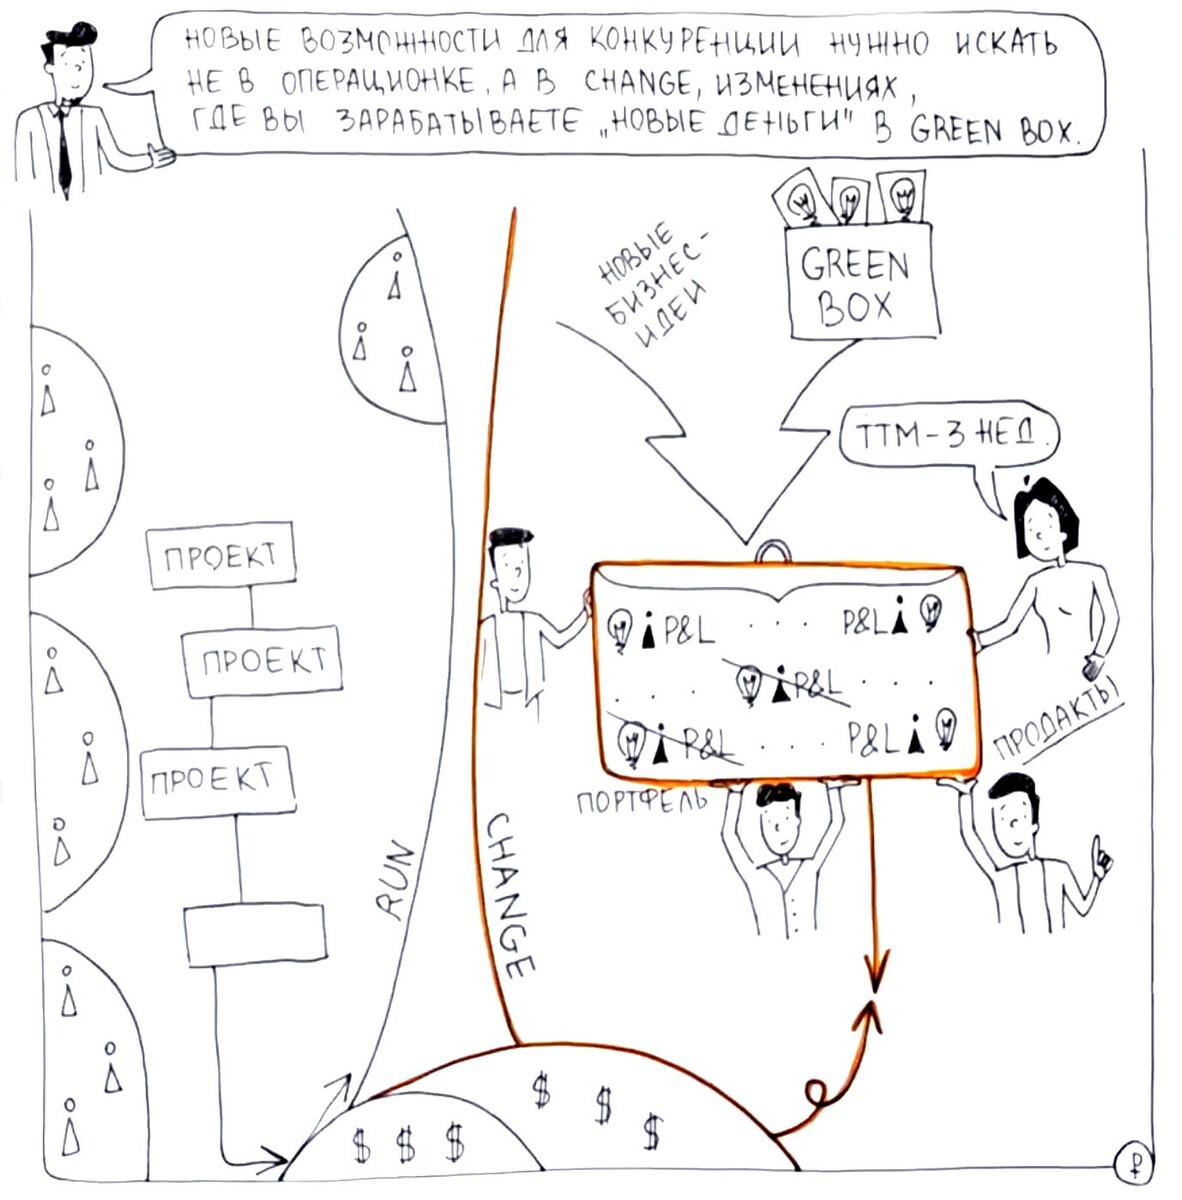 НОВЫЕ ВОЗМОЖНОСТИ ДЛЯ КОНКУРЕНЦИИ НУЖНО ИСКАТЬ
НЕ В ОПЕРАЦИОНКЕ, А В CHANGE, ИЗМЕНЕНИЯХ,
ГДЕ ВЫ ЗАРАБАТЫВАЕТЕ „НОВЫЕ ДЕНЬГИ" В GREEN BOX.
НОВЫЕ
БИЗНЕС-
ИДЕИ
GREEN
BOX
ТТМ-3 НЕД.
ПРОЕКТ
ПРОЕКТ
ПРОЕКТ
RUN
CHANGE
P&L . . . P&L
. . . P&L . . .
P&L . . . P&L
ПОРТФЕЛЬ
ПРОДАКТЫ
$ $ $
$ $ $
₽